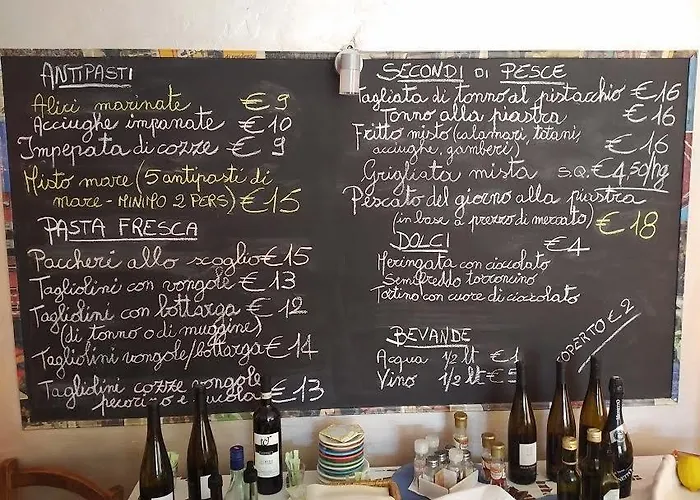 ANTIPASTI
Alici marinate € 9
Acciughe impanate € 10
Impepata di cozze € 9
Misto mare (5 antipasti di
mare - MINIMO 2 PERS) € 15
PASTA FRESCA
Paccheri allo scoglio € 15
Tagliolini con vongole € 13
Tagliolini con bottarga € 12
(di tonno o di muggine)
Tagliolini vongole/bottarga € 14
Tagliolini cozze vongole
pecorino e rucola € 13
SECONDI DI PESCE
Tagliata di tonno al pistacchio € 16
Tonno alla piastra € 16
Fritto misto (calamari, titani,
acciughe, gamberi) € 16
Grigliata mista S.Q. € 4,50/hg
Pescato del giorno alla piastra
(in base a prezzo di mercato) € 18
DOLCI € 4
Meringata con cioccolato
Semifreddo torroncino
Tortino con cuore di cioccolato
BEVANDE
Acqua 1/2 lt € 1
Vino 1/2 lt € 5
COPERTO € 2